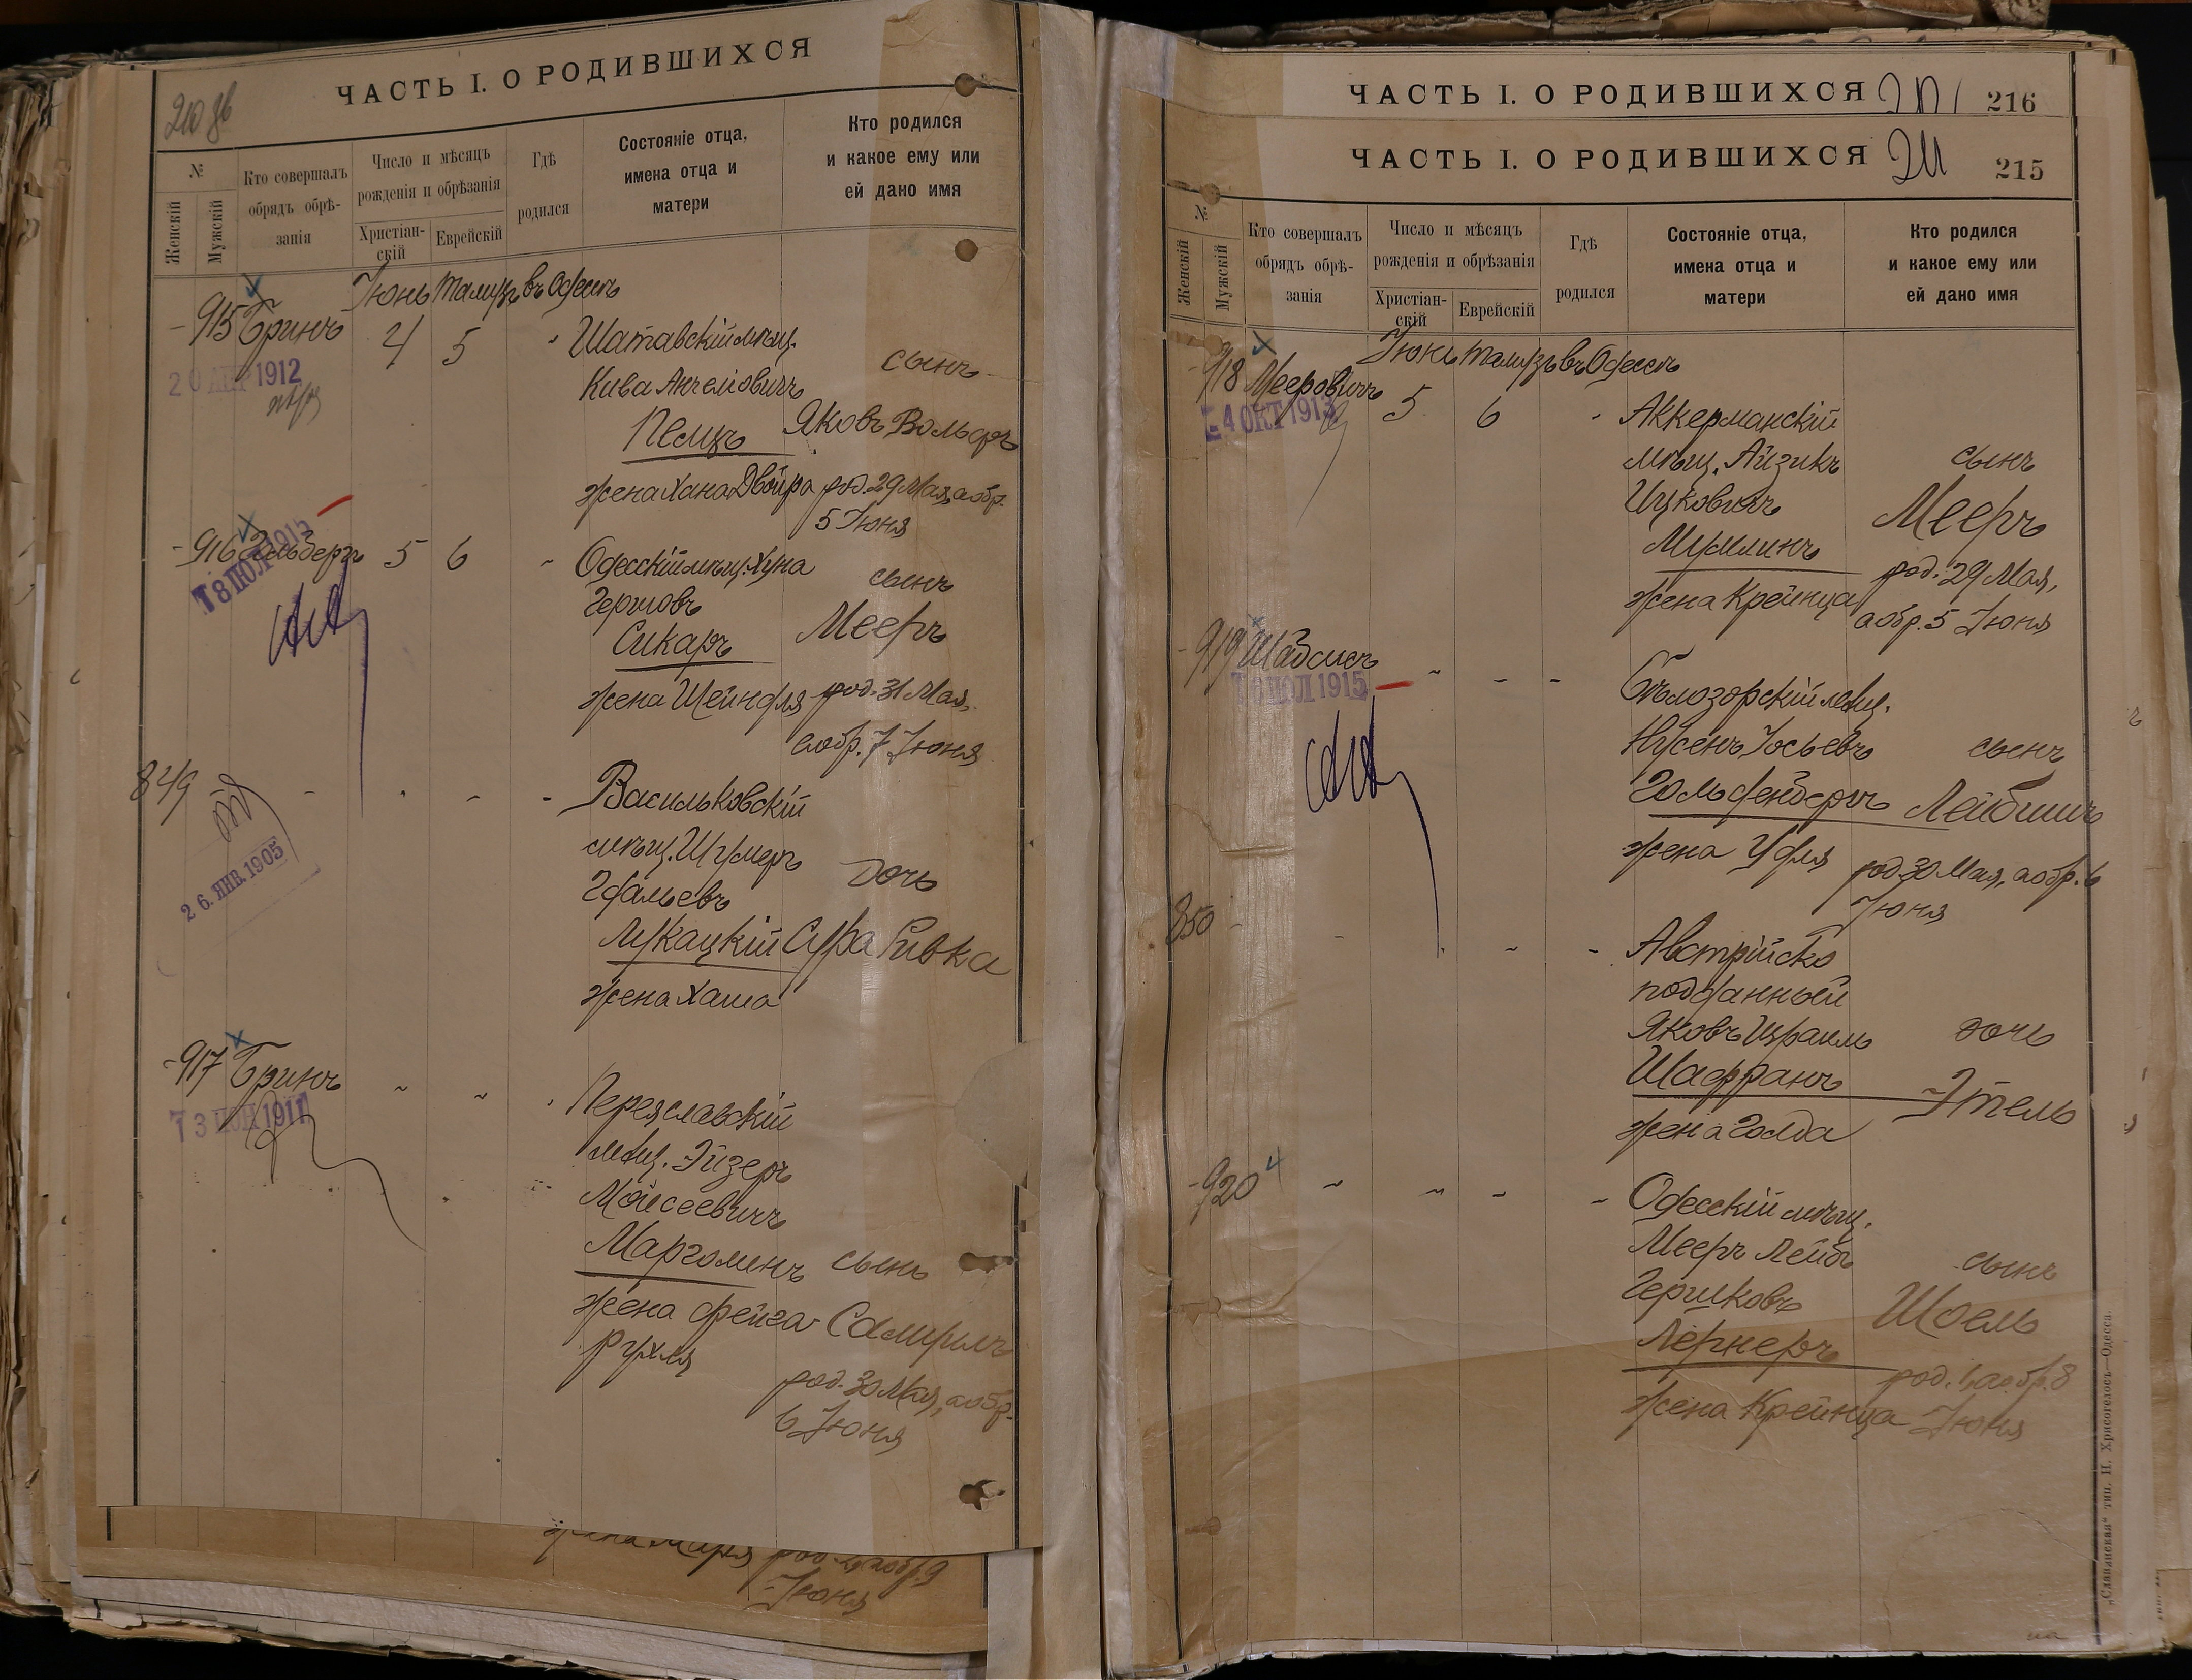 ЧАСТЬ I. О РОДИВШИХСЯ
№
Женскій
Мужскій
Кто совершалъ
обрядъ обрѣ-
занія
Число и мѣсяцъ
рожденія и обрѣзанія
Христіан-
скій
Еврейскій
Гдѣ
родился
Состояніе отца,
имена отца и
матери
Кто родился
и какое ему или
ей дано имя
Іюнь Тамузъ въ Одессѣ
915 Бринъ 4 5 Шатавскій мѣщ.
20 1912
Кива Анчеловичъ сынъ
Пельцъ Яковъ Вольфъ
жена Хана Двойра род. 29 Мая, а обр.
5 Іюня
916 Зильберъ 5 6 Одесскій мѣщ. Хуна
18 ІЮЛ 1915
Гершовъ сынъ
Сикаръ Мееръ
жена Шейндля род. 31 Мая,
а обр. 7 Іюня
849 Васильковскій
26. ЯНВ. 1905
мѣщ. Шулимъ дочь
Лукацкій Сура Ривка
жена Хана
917 Бринъ Переяславскій
13 1911
мѣщ. Эйзеръ
Мойсеевичъ
Марголинъ сынъ
жена Фейга Самуилъ
Рухля
род. 30 Мая, а обр.
6 Іюня
Іюня
ЧАСТЬ I. О РОДИВШИХСЯ 216
ЧАСТЬ I. О РОДИВШИХСЯ 211 215
№
Женскій
Мужскій
Кто совершалъ
обрядъ обрѣ-
занія
Число и мѣсяцъ
рожденія и обрѣзанія
Христіан-
скій
Еврейскій
Гдѣ
родился
Состояніе отца,
имена отца и
матери
Кто родился
и какое ему или
ей дано имя
Іюнь Тамузъ въ Одессѣ
918 Мееровичъ 5 6 Аккерманскій
4 ОКТ 1913
мѣщ. Айзикъ сынъ
Ицковичъ Мееръ
Муслинъ
род. 29 Мая,
жена Крейнца
а обр. 5 Іюня
919 Шабсисъ Бѣлозорскій мѣщ.
ІЮЛ 1915
Нусенъ Іосьевъ сынъ
Гольденбергъ Лейбишъ
жена Удля род. 30 Мая, а обр. 6
Іюня
850 Австрійско
подданный
Яковъ Израиль дочь
Шафранъ Этель
жена Голда
920 Одесскій мѣщ.
Мееръ Лейбъ сынъ
Гершковъ Шоель
Лернеръ
род. 1, а обр. 8
жена Крейнца Іюня
„Славянская“ тип. Н. Хрисогелосъ—Одесса.